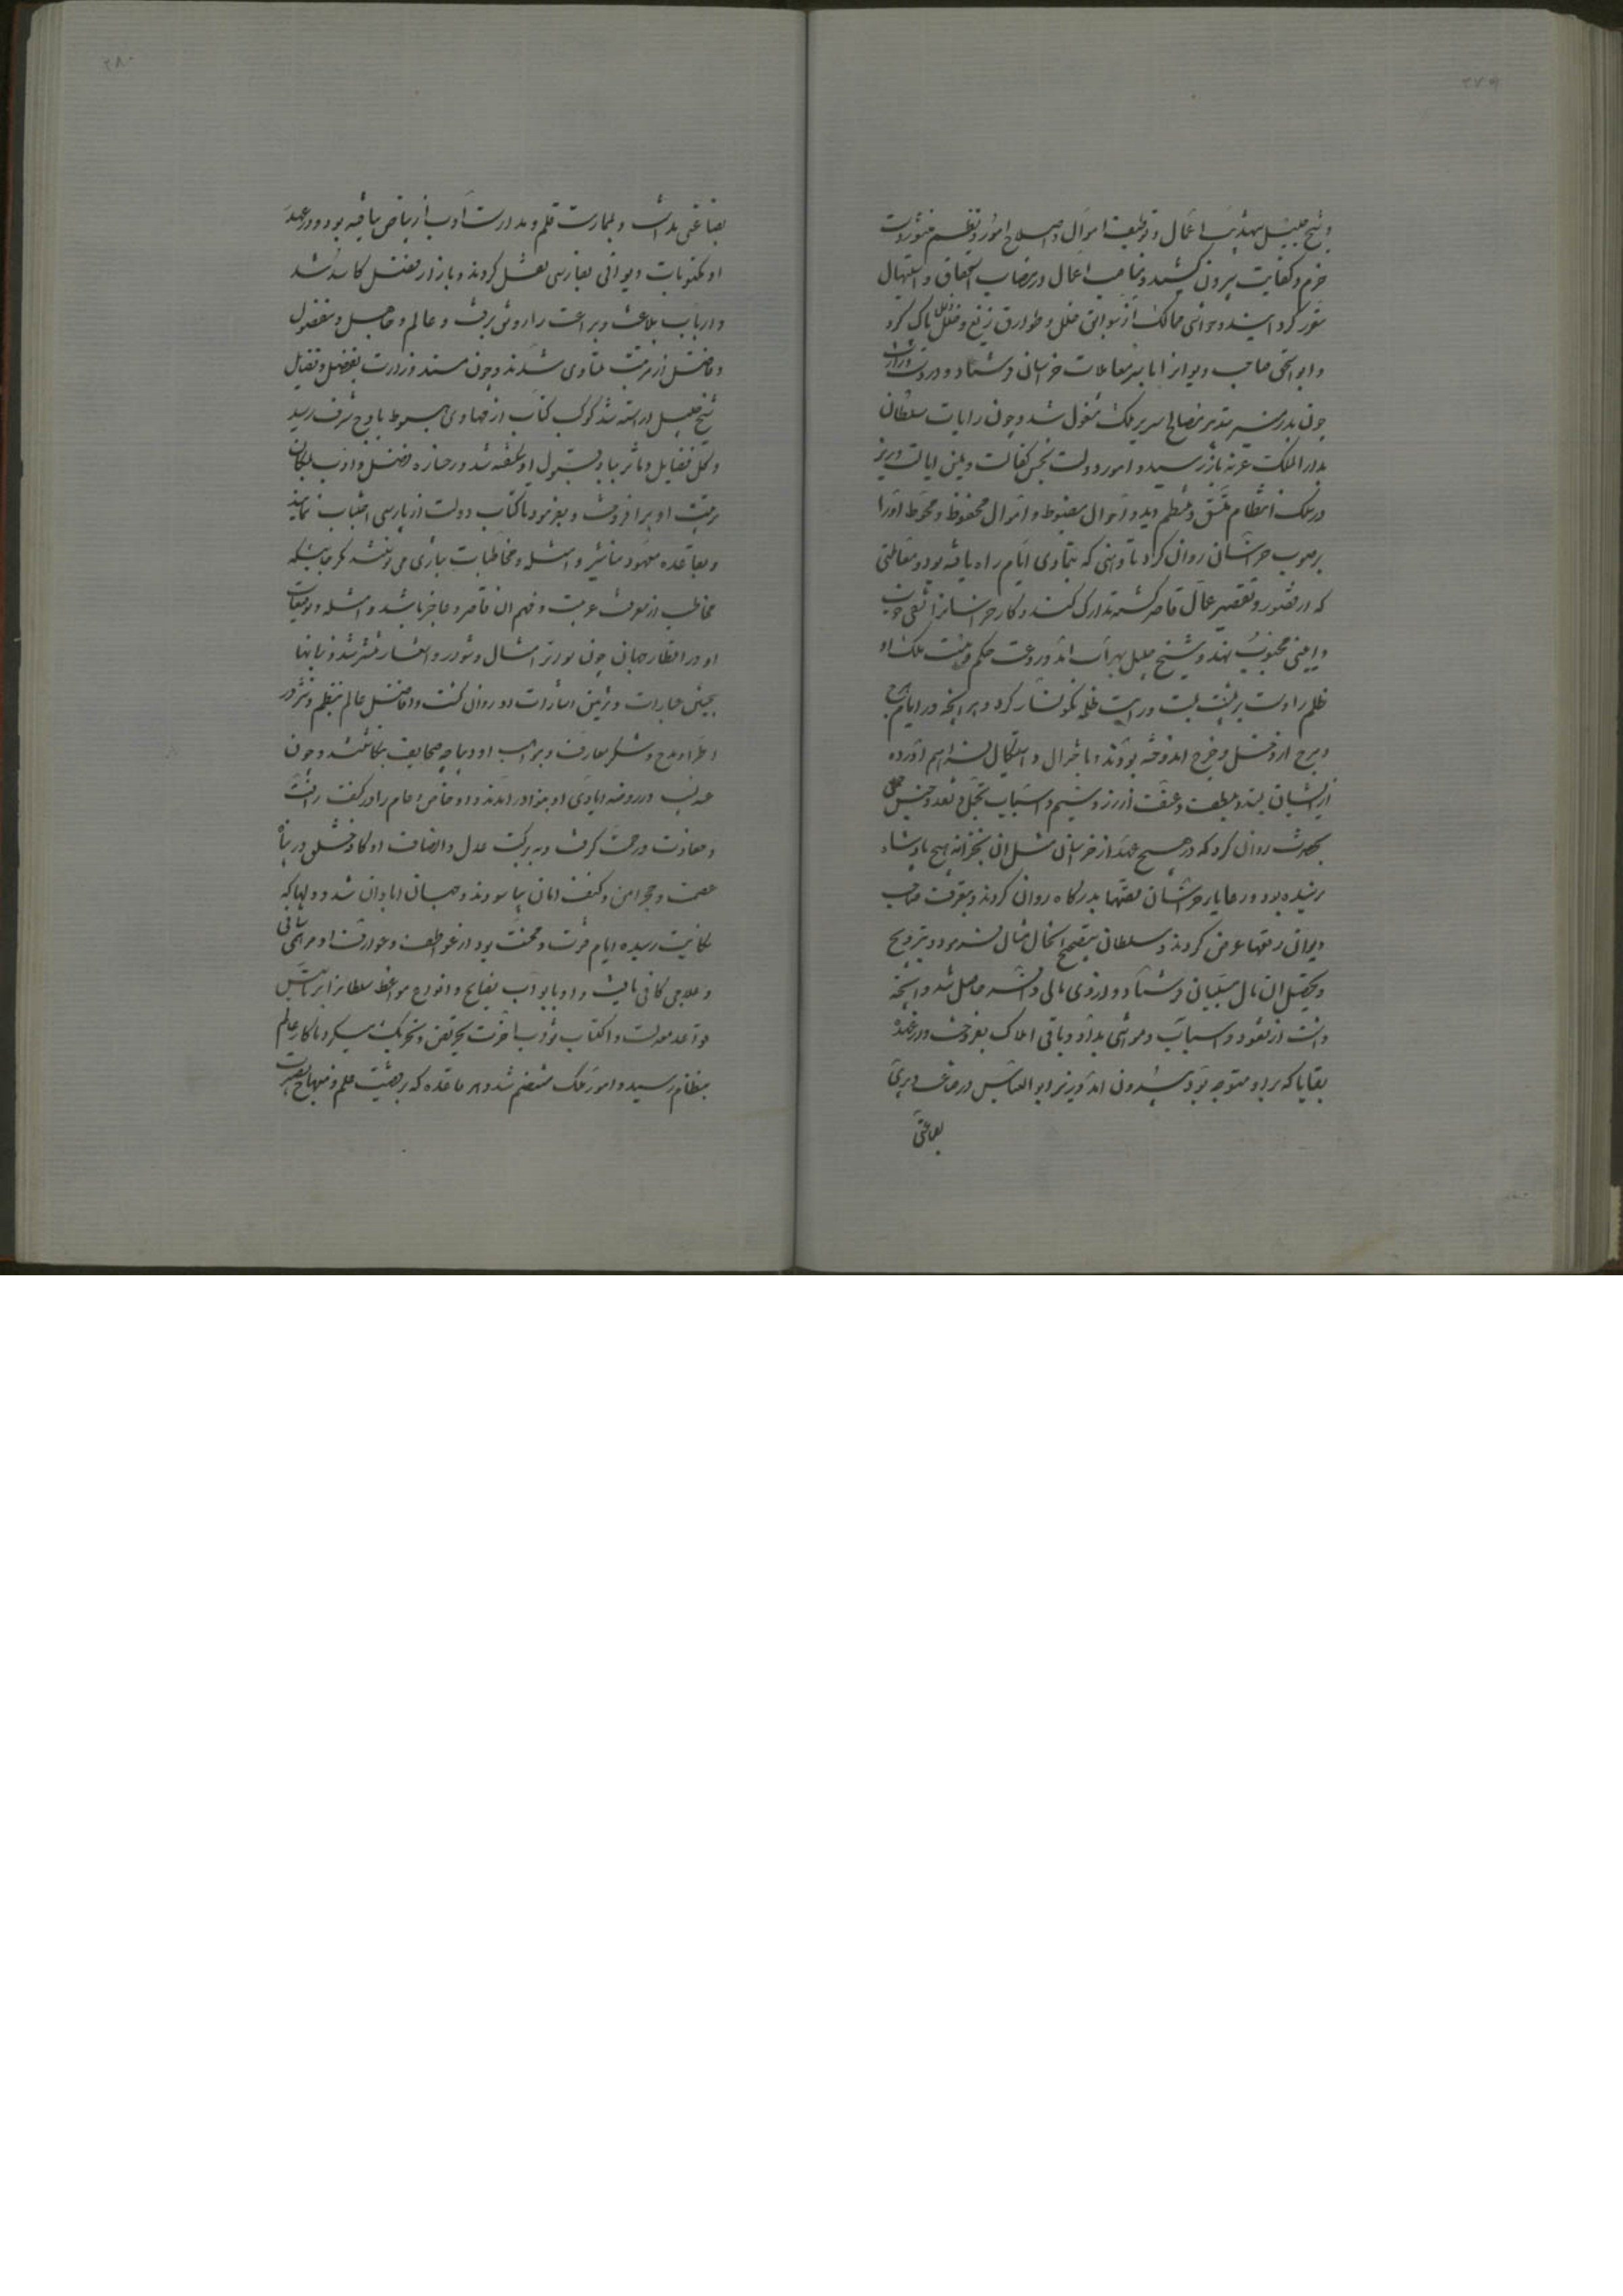 ۲۷۹
و شیخ جلیل بتهذیب اعمال و توظیف اموال و اصلاح امور و تنظیم منثورات
حزم و کفایت بیرون کشید و مناصب اعمال در نصاب استحقاق و استیهال
متقرر گردانید و حواشی ممالک از شوایب خلل و طوارق زیغ و ضلل پاک کرد
و ابو اسحق صاحب دیوانرا بتدبیر معاملات خراسان فرستاد و در دست وزارت
چون بدر منیر بتدبیر مصالح سریر ملک مشغول شد و چون رایات سلطان
بدار الملک غزنه باز رسید و امور دولت بحسن کفالت و یمن ایالت وزیر
در سلک انتظام متسق و منتظم دید و احوال مضبوط و اموال محفوظ و محوط او را
بر صوب خراسان روان کرد تا وهنی که بتمادی ایام راه یافته بود و معاملتی
که از قصور و تقصیر عمال قاصر گشته تدارک کند و کار خراسانرا
و شیخ جلیل بهراة آمد و روعت حکم و هیبت ملک او
ظلم را دست بر پشت بست و رایت ظلمه نگونسار کرد و هر آنچه در ایام
و برج از دخل و خرج اندوخته بودند و باختزال و استیکال فراهم آورده
از ایشان بستد بلطف و عنف از زر و سیم و اسباب تجمل و نقد و جنس حملی
بحضرت روان کرد که در هیچ عهد از خراسان مثل آن بخزانه هیچ پادشاه
نرسیده بود و رعایا خراسان قصتها بدرگاه روان کردند و بمعرفت صاحب
دیوان رفعها عرض کردند و سلطان بتصحیح آنحال مثال فرمود و بترویج
و تحصیل آن مال مستحثان فرستاد و از وی مالی وافر حاصل شد و آنچه
داشت از نقود و اسباب و مواشی بداد و باقی املاک بفروخت و از عهده
بقایا که برو متوجه بود بیرون آمد و وزیر ابو العباس در صناعت دبیری
بضاعتی
۲۸۰
بضاعتی نداشت و بممارست قلم و مدارست ادب ارتیاض نیافته بود و در عهد
او مکتوبات دیوانی بفارسی نقل کردند و بازار فضل کاسد شد
و ارباب بلاغت و براعت را رونقی برفت و عالم و جاهل و مفضول
و فاضل در مرتبت متساوی شدند و چون مسند وزارت بفضل و فضایل
شیخ جلیل آراسته شد کوکب کتاب از مهاوی هبوط باوج شرف رسید
و گل فضایل و مآثر بباد قبول او شکفته شد و رخساره فضل و ادب بمکان
تربیت او برافروخت و بفرمود تا کتاب دولت از پارسی اجتناب نمایند
و بقاعده معهود مناشیر و امثله و مخاطبات بتازی می نویسند مگر جاییکه
مخاطب از معرفت عربیت و فهم آن قاصر و عاجز باشد و امثله و توقیعات
او در اقطار جهان چون نوادر امثال و شوارد اشعار منتشر شد و زبانها
بتحسین عبارات و تزیین اشارات او روان گشت و افاضل عالم بنظم و نثر در
اطراء مدح و شکر معارف و مواهب او دیباچه صحایف بنگاشتند و چون
عندلیب در روضه ایادی او بنوا در آمدند و او خاص و عام را در کنف رأفت
و معاونت و رحمت گرفت و ببرکت عدل و انصاف او کافه خلق در پناه
عصمت و حجر امن و کنف امان بیاسودند و جهان آبادان شد و دلها که
بغایت رسیده ایام فترت و محنت بود از عواطف و عوارف او مرهمی شافی
و علاجی کافی یافت و او بابواب نصایح و انواع مواعظ سلطانرا بر تأسیس
قواعد معدلت و اکتساب ثواب آخرت تحریض و تحریک میکرد تا کار عالم
بنظام رسید و امور ملک منتظم شد و هر قاعده که بر قضیت علم و منهاج بصیرت